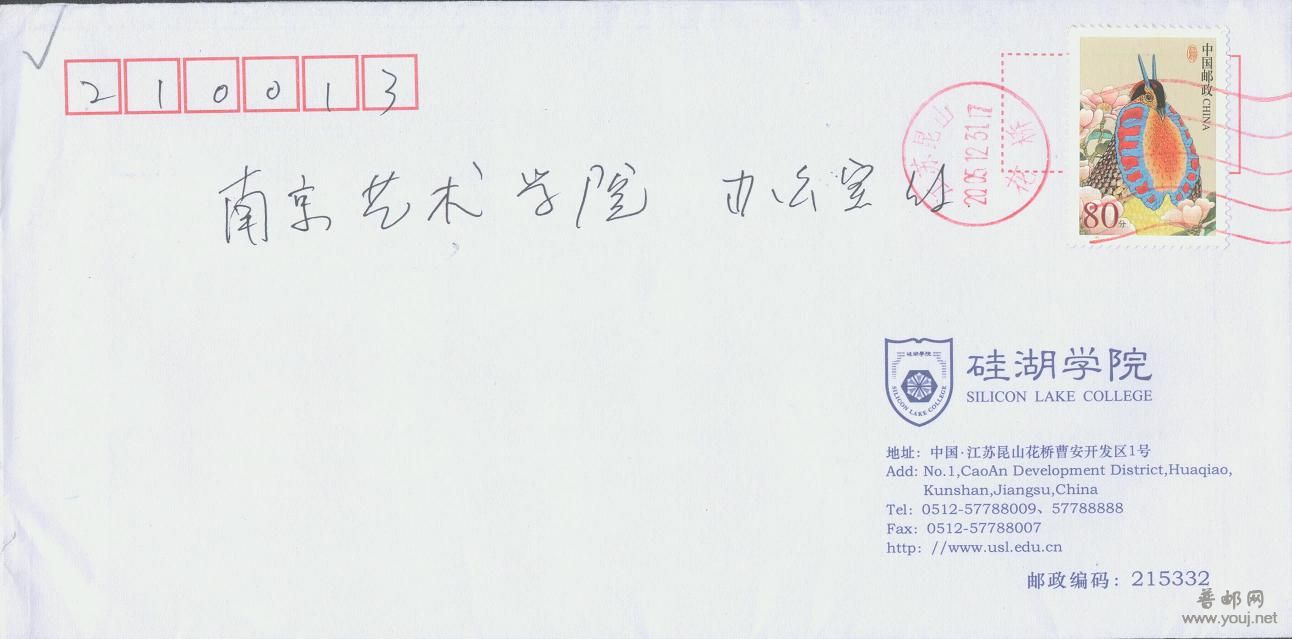 210013
南京艺术学院 办公室 收
中国邮政 CHINA
80分
江苏昆山
2005.12.31.17
花桥
硅湖学院
SILICON LAKE COLLEGE
硅湖学院
SILICON LAKE COLLEGE
地址：中国·江苏昆山花桥曹安开发区1号
Add: No.1,CaoAn Development District,Huaqiao,
Kunshan,Jiangsu,China
Tel: 0512-57788009、57788888
Fax: 0512-57788007
http: //www.usl.edu.cn
邮政编码：215332
普邮网
www.youj.net